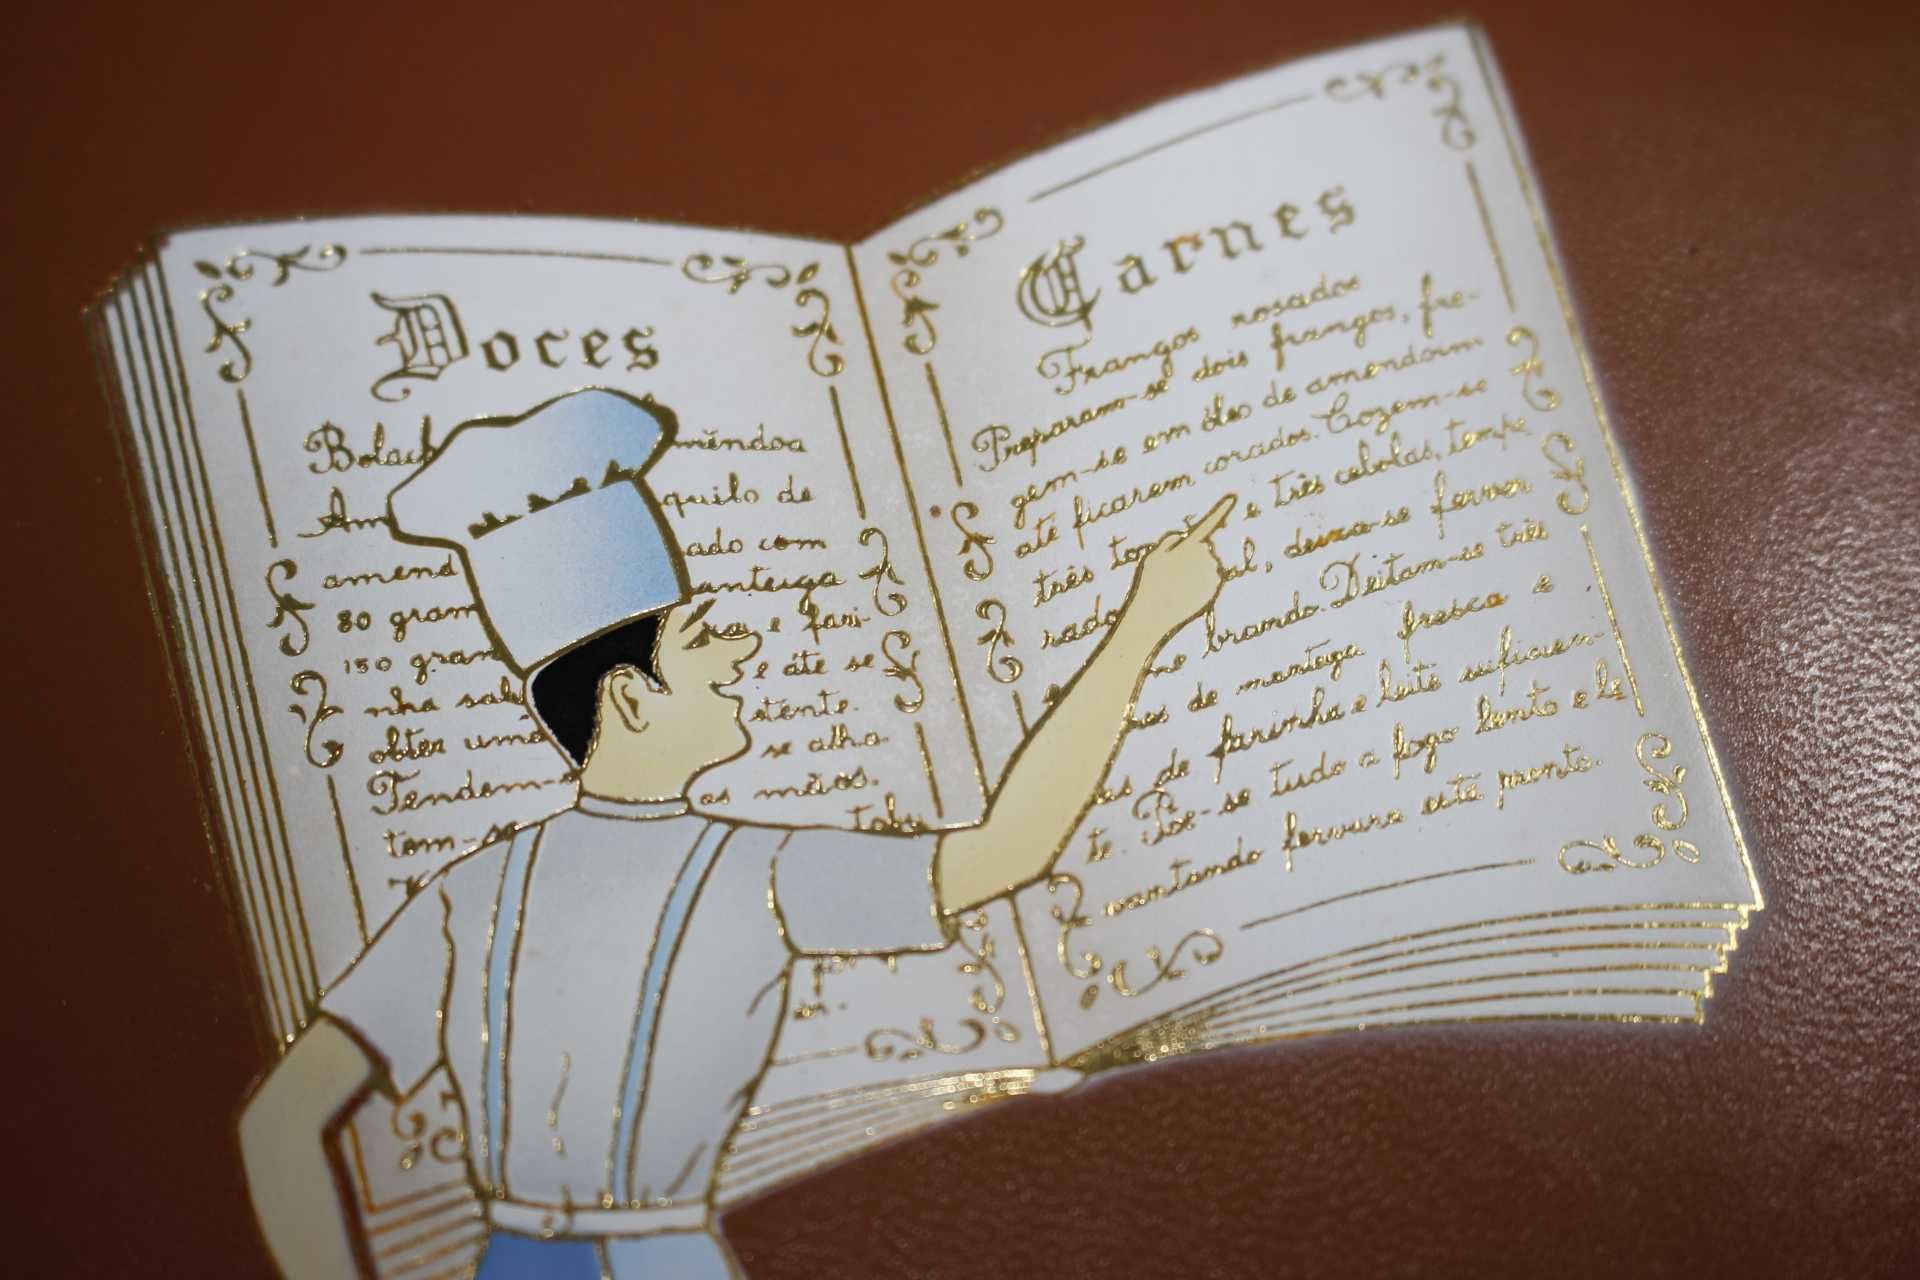 Doces
Bolach mêndoa
Am quilo de
amend ado com
80 gram anteiga
150 gram ra e fari-
nha sal e áte se
obter uma stente.
Tendem-s se alha
tem-se as mãos.
tabu
Carnes
Frangos rosados
Preparam-se dois frangos, fre-
gem-se em óleo de amendoim
até ficarem corados. Cozem-se
três tomate e três cebolas, tempe
rado al, deixa-se ferver
me brando. Deitam-se três
hes de manteiga fresca e
as de farinha e leite suficien-
te. Põe-se tudo a fogo lento e le
vantando fervura está pronto.